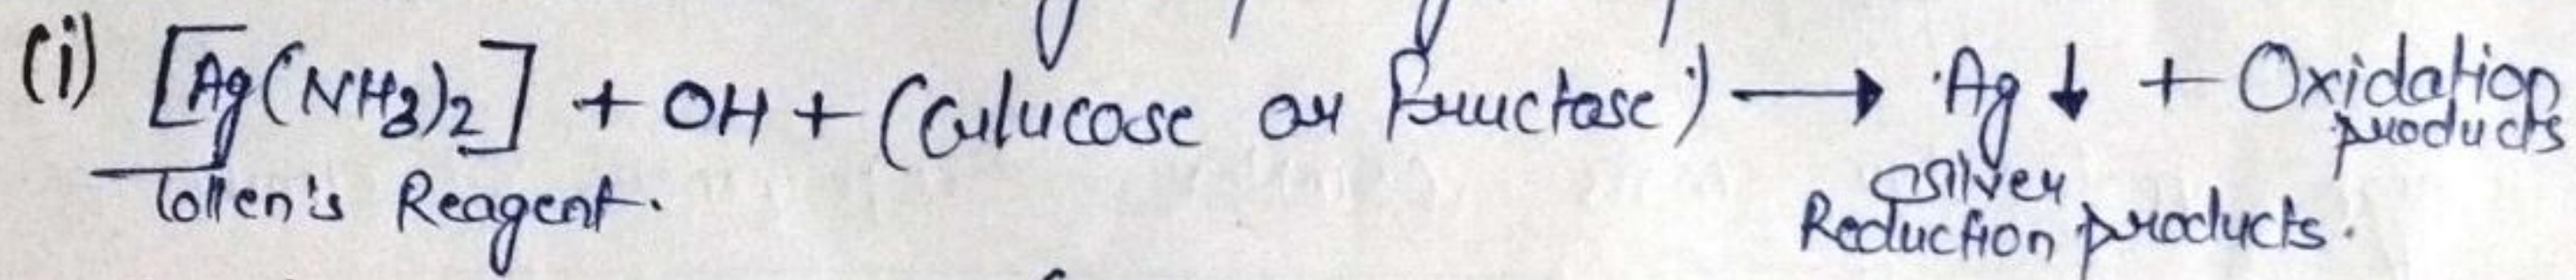 (i) [Ag(NH3)2] + OH + (Gulucose or fructose) → Ag ↓ + Oxidation
products
Tollen's Reagent.
Silver
Reduction products.